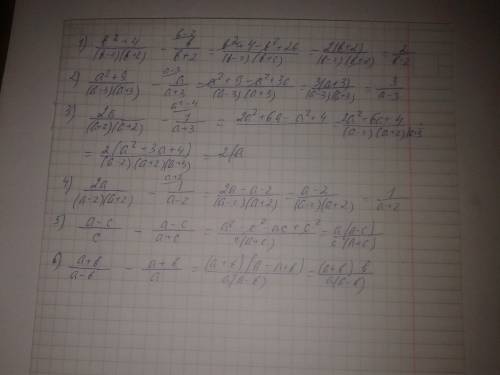 1) (b²+4)/((b-2)(b+2)) - (b-2) b/(b+2) = (b²+4-b²+2b)/((b-2)(b+2)) = 2(b+2)/((b-2)(b+2)) = 2/(b-2)
2) (a²+9)/((a-3)(a+3)) - (a-3) a/(a+3) = (a²+9-a²+3a)/((a-3)(a+3)) = 3(a+3)/((a-3)(a+3)) = 3/(a-3)
3) 2a/((a-2)(a+2)) - (a²-4) 1/(a+3) = 2a²+6a-a²+4
= 2(a²+3a+4)
4) 2a/((a-2)(a+2)) - (a+2) 1/(a-2) = (2a-a-2)/((a-2)(a+2)) = (a-2)/((a-2)(a+2)) = 1/(a+2)
5) (a-c)/c - (a-c)/(a+c) = (a²-c²-ac+c²)/(c(a+c)) = a(a-c)/(c(a+c))
6) (a+b)/(a-b) - (a+b)/a = (a+b)(a-a+b)/(a(a-b)) = (a+b)b/(a(a-b))